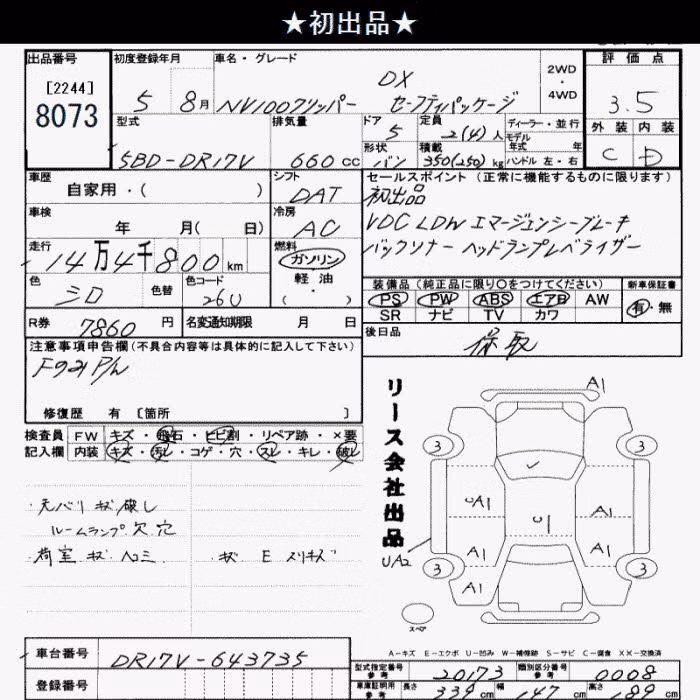 ★初出品★
出品番号 初度登録年月 車名・グレード 評価点
[2244]
8073
5 8月 NV100クリッパー DX セーフティパッケージ 2WD・4WD 3.5
型式 排気量 ドア 定員 ディーラー・並行 外装 内装
5BD-DR17V 660cc 5 2(4)人 モデル年式 年式 C D
形状 バン 積載 350(250)kg ハンドル 左・右
車歴 自家用・( ) シフト DAT
セールスポイント(正常に機能するものに限ります)
初出品
VDC LDW エマージェンシーブレーキ
バックソナー ヘッドランプレベライザー
車検 年 月( 日) 冷房 AC
走行 14万4千800km 燃料 ガソリン 軽油 ( ・ )
色 シロ 色替 色コード 26U
装備品(純正品に限り〇をつけてください) 新車保証書
PS PW ABS エアB AW 有・無
SR ナビ TV カワ
R券 7860円 名変通知期限 月 日
後日品 保取
注意事項申告欄(不具合内容等は具体的に記入して下さい)
修復歴 有 [箇所 ]
検査員 FW キズ・飛石・ヒビ割・リペア跡・×要
記入欄 内装 キズ・汚レ・コゲ・穴・スレ・キレ・破レ
元バリ キズ 破レ
ルームランプ欠 穴
荷室 キズ ヘコミ
キズ E スリキズ
リース会社出品
A1
3 3
UA1 A1
U1
A1 A1
UA2
3 3
A1
スペア
A-キズ E-エクボ U-凹み W-補修跡 S-サビ C-腐食 XX-交換済
車台番号 DR17V-643735
登録番号
型式指定番号 参考 20173 類別区分番号 参考 0008
車庫証明用 参考 長さ 339cm 幅 147cm 高さ 189cm